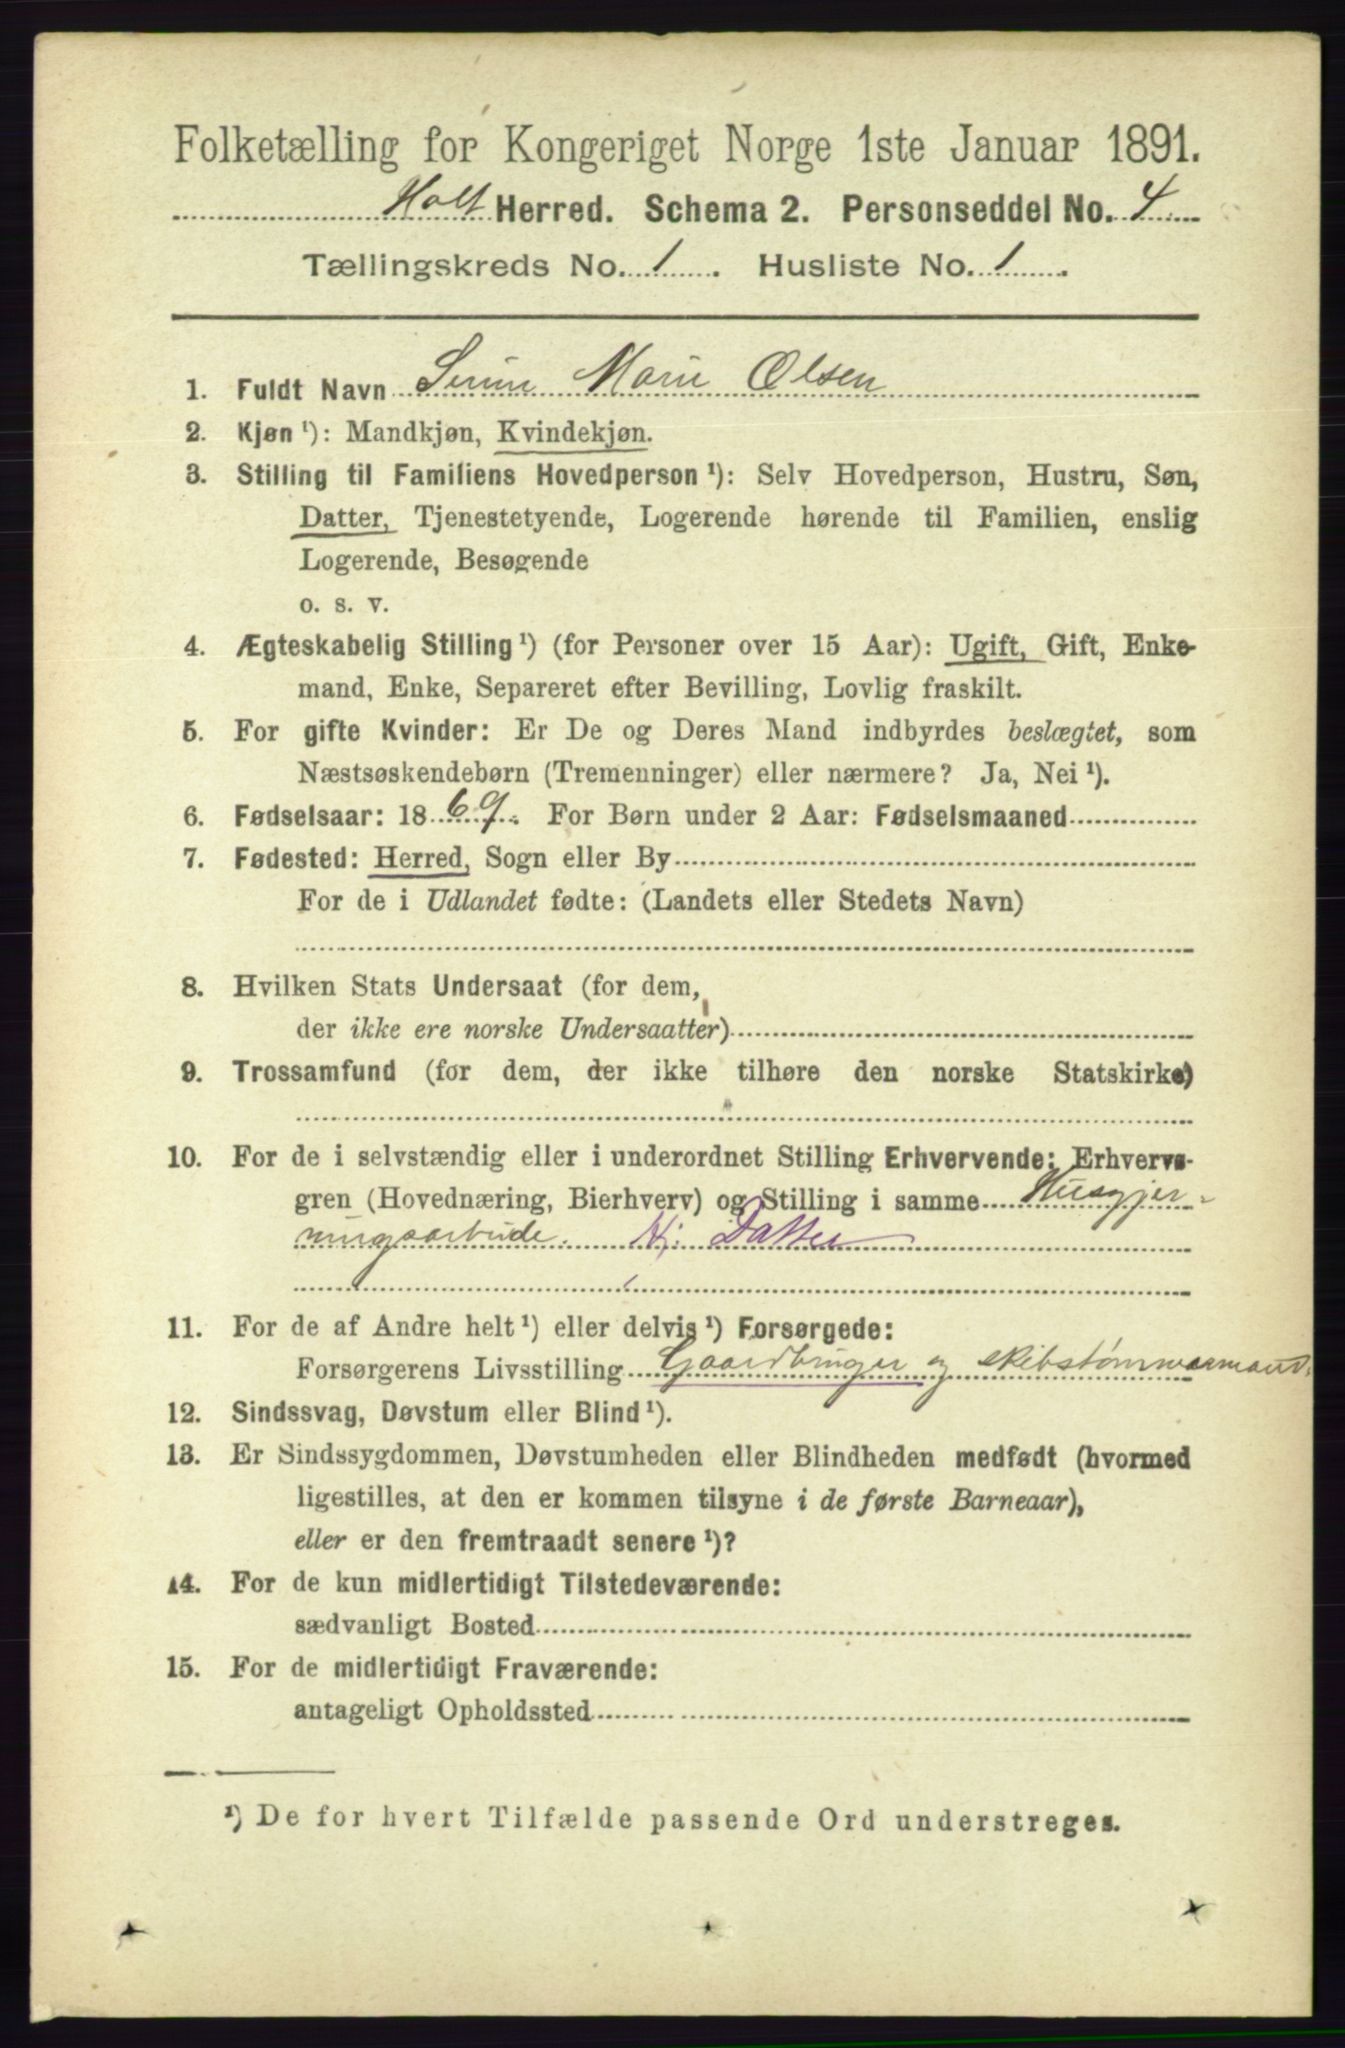 Folketælling for Kongeriget Norge 1ste Januar 1891.
Holt Herred. Schema 2. Personseddel No. 4
Tællingskreds No. 1. Husliste No. 1.
1. Fuldt Navn Serine Marie Olsen
2. Kjøn ¹): Mandkjøn, Kvindekjøn.
3. Stilling til Familiens Hovedperson ¹): Selv Hovedperson, Hustru, Søn,
Datter, Tjenestetyende, Logerende hørende til Familien, enslig
Logerende, Besøgende
o. s. v.
4. Ægteskabelig Stilling ¹) (for Personer over 15 Aar): Ugift, Gift, Enke-
mand, Enke, Separeret efter Bevilling, Lovlig fraskilt.
5. For gifte Kvinder: Er De og Deres Mand indbyrdes beslægtet, som
Næstsøskendebørn (Tremenninger) eller nærmere? Ja, Nei ¹).
6. Fødselsaar: 1869. For Børn under 2 Aar: Fødselsmaaned
7. Fødested: Herred, Sogn eller By
For de i Udlandet fødte: (Landets eller Stedets Navn)
8. Hvilken Stats Undersaat (for dem,
der ikke ere norske Undersaatter)
9. Trossamfund (for dem, der ikke tilhøre den norske Statskirke)
10. For de i selvstændig eller i underordnet Stilling Erhvervende: Erhvervs-
gren (Hovednæring, Bierhverv) og Stilling i samme Husgjer-
ningsarbeide. Hj. Datter
11. For de af Andre helt ¹) eller delvis ¹) Forsørgede:
Forsørgerens Livsstilling Gaardbruger og skibstømmermand.
12. Sindssvag, Døvstum eller Blind ¹).
13. Er Sindssygdommen, Døvstumheden eller Blindheden medfødt (hvormed
ligestilles, at den er kommen tilsyne i de første Barneaar),
eller er den fremtraadt senere ¹)?
14. For de kun midlertidigt Tilstedeværende:
sædvanligt Bosted
15. For de midlertidigt Fraværende:
antageligt Opholdssted
¹) De for hvert Tilfælde passende Ord understreges.